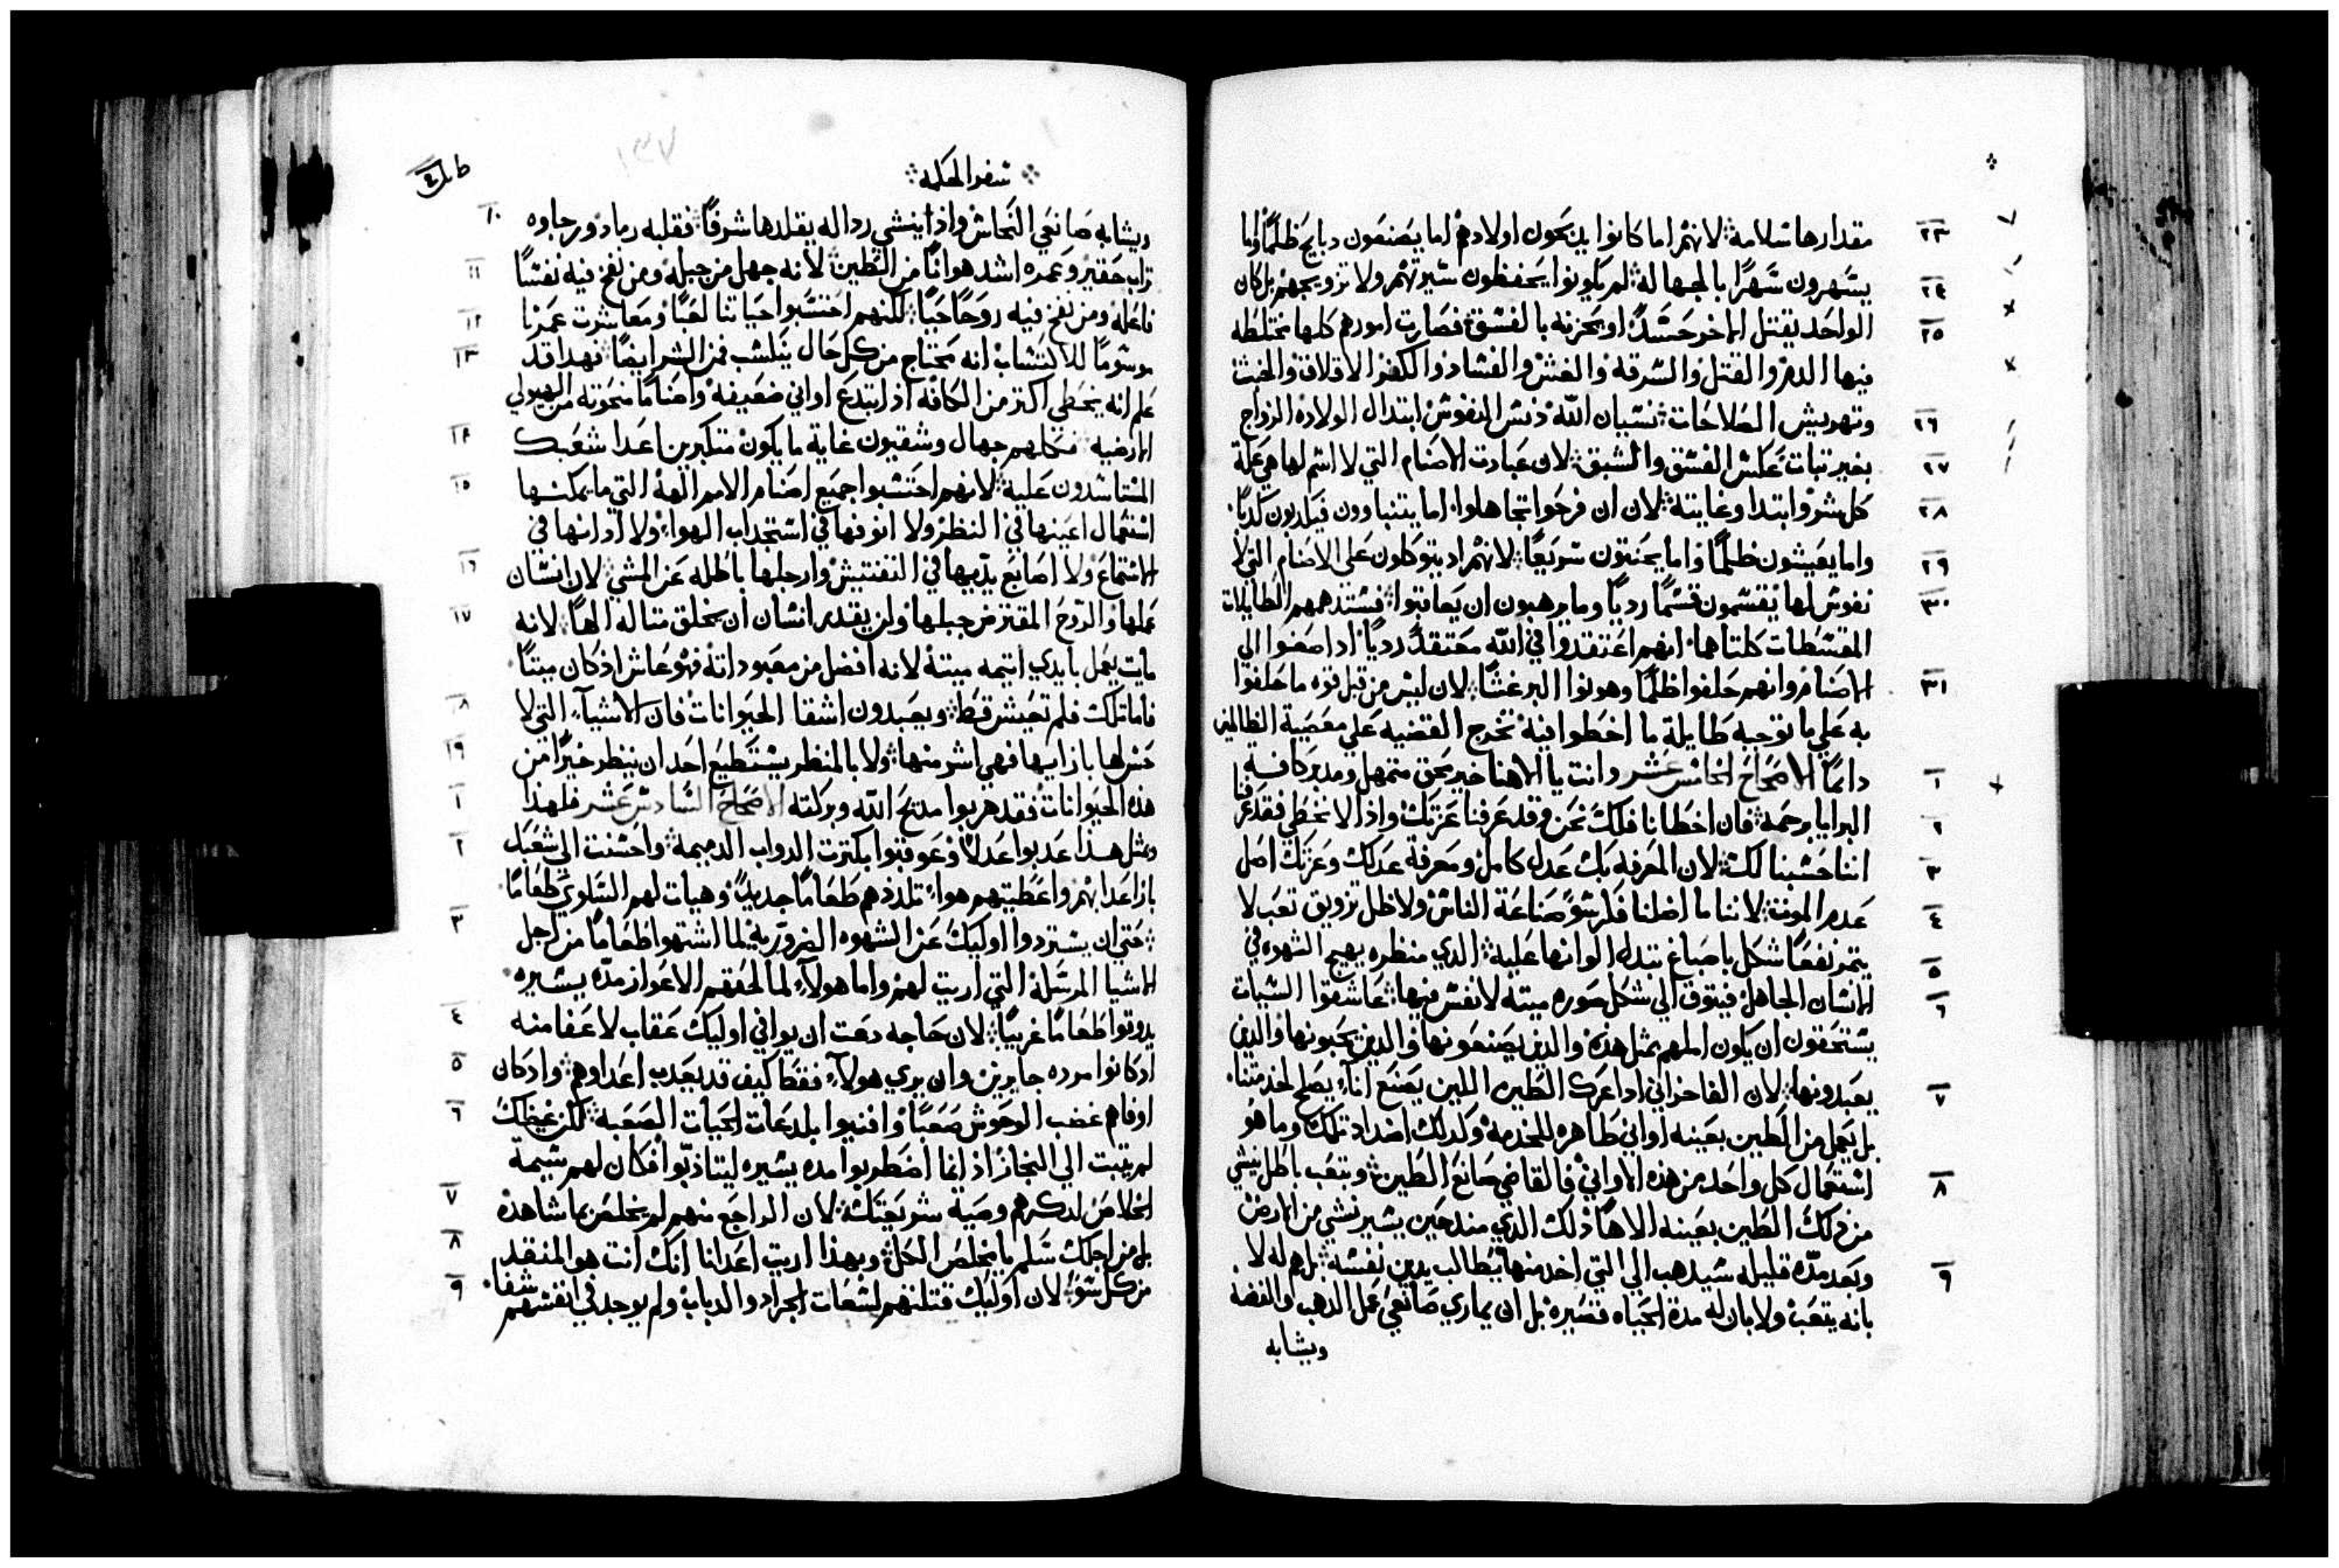 مقدارها سلامة لانهم اما كانوا يدبحون اولادهم اما يصنعون دبايح ظلما واما
يسهرون سهرا بالجهاله لم يكونوا يحفظون سيرتهم ولا تزويجهم بل كان
الواحد يقتل الاخر حسدا او يحزنه بالفسق فصارت امورهم كلها مختلطه
فيها الدم والقتل والسرقة والغش والفساد والكفر الاقلاق والخبث
وتهويش الصلاحات نسيان الله دنس النفوس ابتدال الولادة الزواج
بغير تبات عكس الفسق والشبق لان عبادت الاصنام التي لا اسم لها هي علة
كل شر وابتدا وغايته لان ان فرحوا تجاهلوا اما يتنباوون فيكدبون كدبا
واما يعيشون ظلما واما يحنتون سريعا لانهم اد يتوكلون على الاصنام التي لا
نفوس لها يقسمون قسما رديا وما يرهبون ان يعاقبوا فستدهمهم الطايلات
المقسطات كلتاهما انهم اعتقدوا في الله معتقدا رديا ادا صغوا الي
الاصنام وانهم حلفوا ظلما وهونوا البر غشا لان ليس من قبل قوه ما حلفوا
به علي ما توجبه طايلة ما اخطوا فيه تخرج القضيه علي معصية الظالمين
دايما الاصحاح الخامس عشر وانت يا الاهنا خير محق متمهل ومدبر كافة
البرايا برحمة فان اخطانا فلك نحن وقد عرفنا عزتك وادا لا نخطي فقد عرفنا
اننا حسبنا لك لان المعرفه بك عدل كامل ومعرفة عدلك وعزتك اصل
عدم الموت لاننا ما اضلنا فكر سو صناعة الناس ولا ظل تزويق تعب لا
يتمر نفعا شكل باصباغ تبدل الوانها عليه الدي منظره يهيج الشهوه في
الانسان الجاهل فيتوق الي شكل صوره ميته لا نفس فيها عاشقوا السيات
يستحقون ان يكون املهم بمثل هده والدين يصنعونها والدين يحبونها والدين
يعبدونها لان الفاخراني ادا عرك الطين اللين يصنع اناء يصلح لخدمتنا
بل يعمل من الطين بعينه اواني طاهره للخدمة وكدلك اضداد تلك وما هو
استعمال كل واحد من هذه الاواني فالقاضي صانع الطين ويتعب باطل ينشي
من دلك الطين بعينه الاها دلك الدي مند حين يسير نشي من الارض
وبعد مدة قليله سيدهب الي التي اخد منها يطالب بدين نفسه بل هم له لا
بانه يتعب ولا بان له مدة الحياه قصيره بل ان يماري صانعي عمل الدهب والفضه
ويشابه
سفر الحكمة
ويشابه صانعي النحاس واد اينشي ردا له يقلدها شرفا فقلبه رماد ورجاوه
تراب حقير وعمره اشد هوانا من الطين لانه جهل من جبله ومن نفخ فيه نفسا
فاعله ومن نفخ فيه روحا حيا لكنهم احتسبوا حياتنا لعبا ومعاشرت عمرنا
موسوما للاكتساب انه يحتاج من كل حال يكسب فمن الشر ايضا فهدا قد
علم انه يخطي اكتر من الكافه اد ابتدع اواني ضعيفه واصناما منحوته من الهيولي
الارضيه فكلهم جهال وشقيون غاية ما يكون متكبرين اعدا شعبك
المستاسدون عليه لانهم احتسبوا جميع اصنام الامم الهة التي ما يمكنها
استعمال اعينها في النظر ولا انوفها في استجداب الهواء ولا ادانها في
الاستماع ولا اصابع يديها في التفتيش وارجلها باطله عن المشي لان انسان
عملها والروح المقتر من جبلها ولن يقدر انسان ان يخلق متاله الها لانه
مايت يعمل بايدي اتيمه ميتة لانه افضل من معبوداته فهو عاش اد كان ميتا
فاما تلك فلم تعيش قط ويعبدون اشقا الحيوانات فان الاشياء التي لا
حس لها بازايها فهي اشر منها ولا بالمنظر يستطيع احد ان ينظر خيرا من
هذه الحيوانات فقد هربوا مدح الله وبركته الاصحاح السادس عشر فلهذا
وبمثل هذا عدبوا عدلا وعوقبوا بكترت الدواب الدميمة واحسنت الي شعبك
بازا عدابهم واعطيتهم هواء تلددهم طعاما جديدا وهيات لهم السلوي طعاما
حتي ان يستردوا اوليك عن الشهوه الضرورية لما اشتهوا طعاما من اجل
الاشيا المرسلة التي اريت لهم واما هولاء لما لحقهم الاعواز مدة يسيره
يدوقوا طعاما غريبا لان حاجه دعت ان يوافي اوليك عقاب لا عفا منه
اد كانوا مرده جايرين وان يري هولاء فقط كيف قد يعدب اعداوهم واد كان
اوفاهم غضب الوحوش صعبا وافنيوا بلدعات الحيات الصعبة لكن غيظك
لم يتبت الي النجاز اد انما اضطربوا مده يسيره ليتادبوا فكان لهم شيمة
الخلاص لدكرهم وصية سو يحتك لان الراجع منهم لم يخلص بما شاهده
بل من اجلك سلم يا مخلص الكل وبهذا اريت اعدانا انك انت هو المنقد
من كل سو لان اوليك قتلتهم لسعات الجراد والدباب ولم يوجد في انفسهم شفا